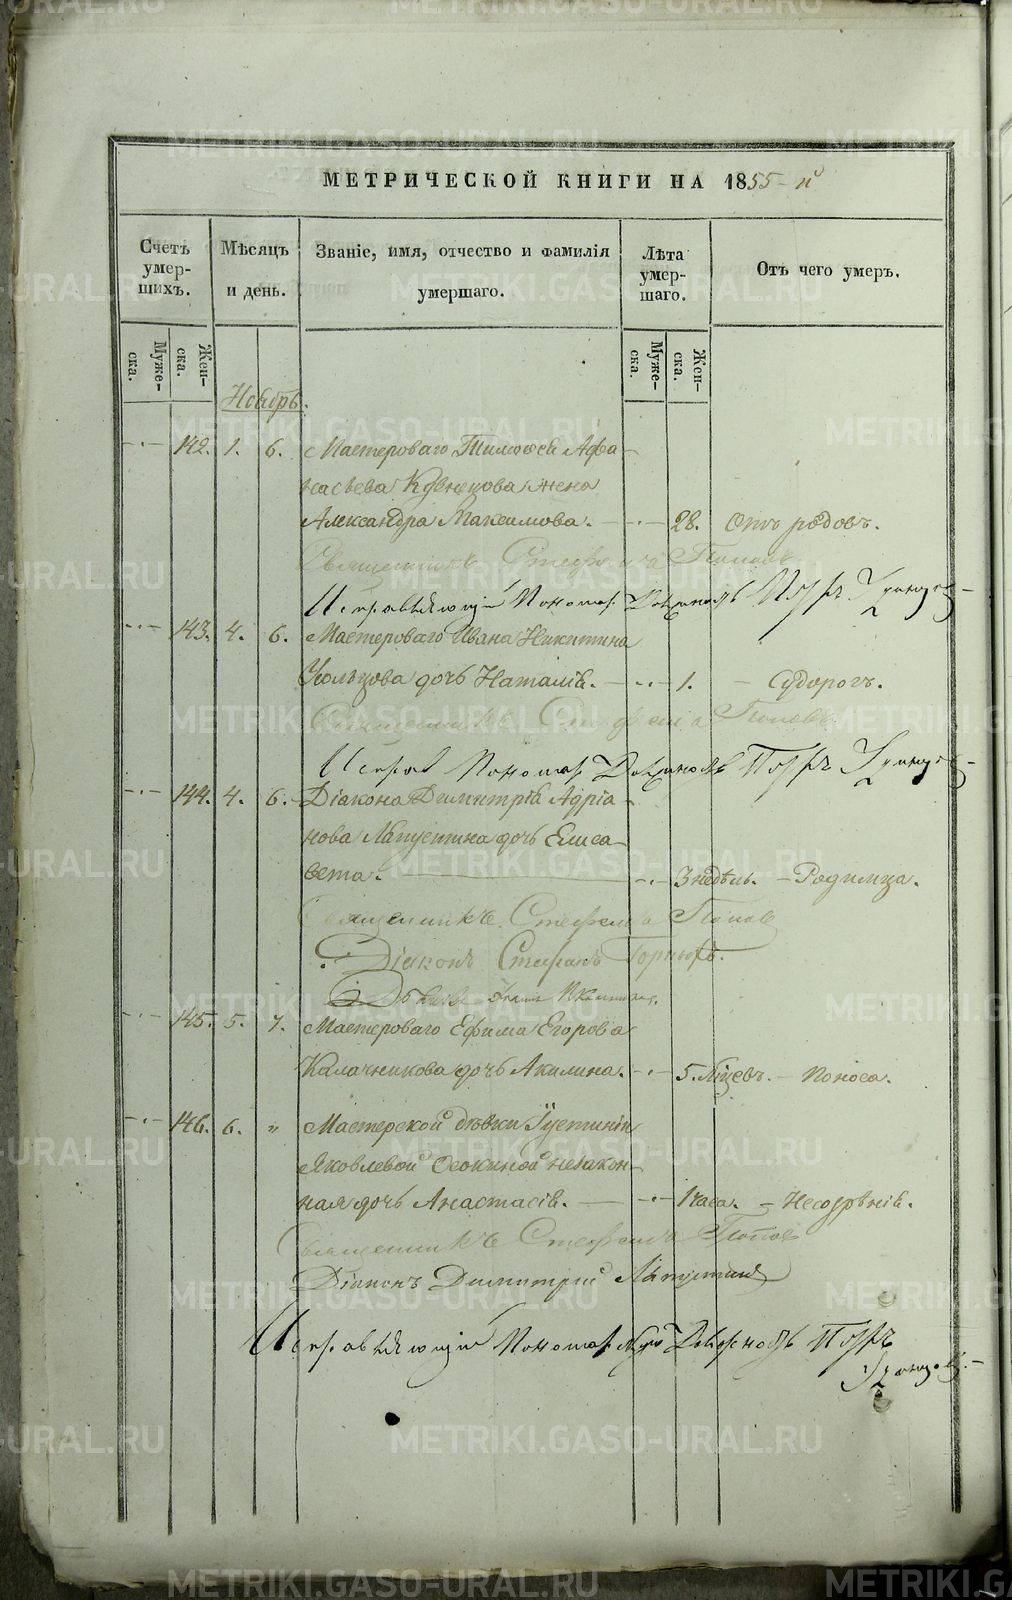 МЕТРИЧЕСКОЙ КНИГИ НА 1855-й
Счетъ умер-шихъ.
Мѣсяцъ и день.
Званіе, имя, отчество и фамилія умершаго.
Лѣта умер-шаго.
Отъ чего умеръ.
Муже-ска.
Жен-ска.
Муже-ска.
Жен-ска.
Ноябрь.
142. 1. 6. Мастероваго Тимоѳея Афа-
насьева жена
Александра Максимова. 28. Отъ родовъ.
Священникъ Стефанъ Поповъ
Исправляющій Пономар. Должность Петръ
143. 4. 6. Мастероваго Ивана Никитина
Усольцова дочь Наталія. 1. Судорогъ.
Священникъ Стефанъ Поповъ
Исправ Пономар Должность Петръ
144. 4. 6. Діакона Димитрія Адріа-
нова Лапустина дочь Елиса-
вета. 3 недѣль. Родимца.
Священникъ Стефанъ Поповъ
Діаконъ Стефанъ
145. 5. 7. Мастероваго Ефима Егорова
Калачникова дочь Акилина. 5. Мѣсяцевъ. Поноса.
146. 6. " Мастерской дѣвки Іустиніи
Яковлевой Осокиной незакон-
ная дочь Анастасія. 1 часа. Несозрѣнія.
Священникъ Стефанъ Поповъ
Діаконъ Димитрій Лапустинъ
Исправляющій Пономар Должность Петръ
METRIKI.GASO-URAL.RU